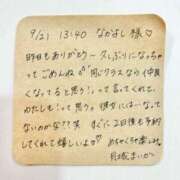 9/21 13:40 なかよし様♡
昨日もありがとう〜久しぶりになっちゃ
ってごめんね💦 "同じクラスなら(仲良
くなってると思う!って言ってくれて、
わたしも!って思う。僕りにはーなって
ないのかな??笑 すぐに2日後も予約
してくれて嬉しいよ♡ めちゃくちゃ楽しみ。
月城まいか